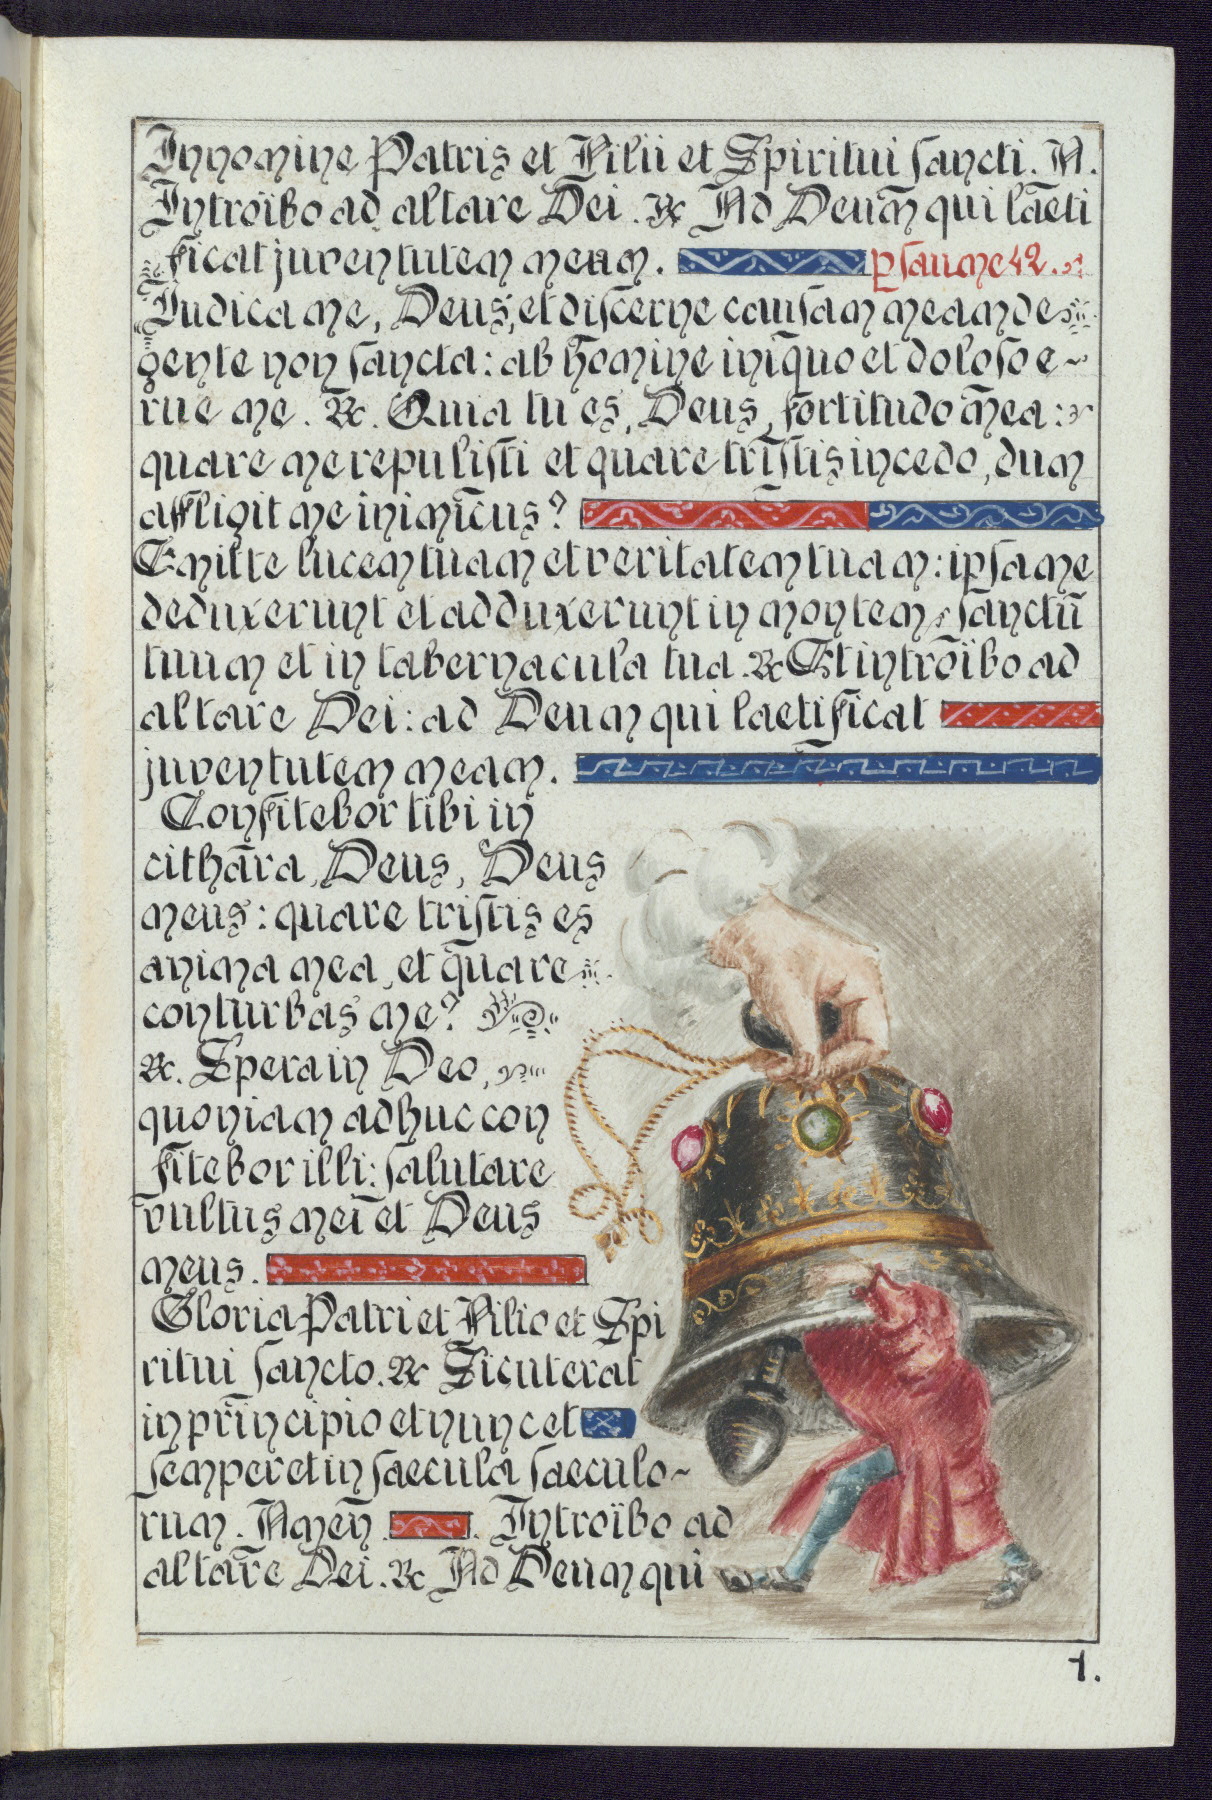 In nomine Patris et Filii et Spiritui sancti. A.
Introïbo ad altare Dei. ℟ Ad Deum̄ qui lāeti
ficat juventutem meam. psaume 42.
Judica me, Deus, et discerne causam meam de
gente non sancta: ab homine iniquo et doloso e~
rue me. ℟. Quia tu es, Deus, fortitudo mea:
quare me repulisti et quare tristis incedo, dum
affligit me inimicus?
Emitte lucem tuam et veritatem tuam: ipsa me
deduxerunt et adduxerunt in montem sanctū
tuum et in tabernacula tua. ℟ Et introïbo ad
altare Dei: ad Deum qui laetificat
juventutem meam.
Confitebor tibi in
cithāra, Deus, Deus
meus: quare tristis es
anima mea, et quare
conturbas me?
℟. Spera in Deo,
quoniam adhuc con
fitebor illi: salutare
vultus mei et Deus
meus.
Gloria Patri et Filio et Spi
ritui sancto. ℟ Sicut erat
in principio et nunc et
semper et in saecula saeculo~
rum. Amen. Introïbo ad
altare Dei. ℟ Ad Deum qui
1.